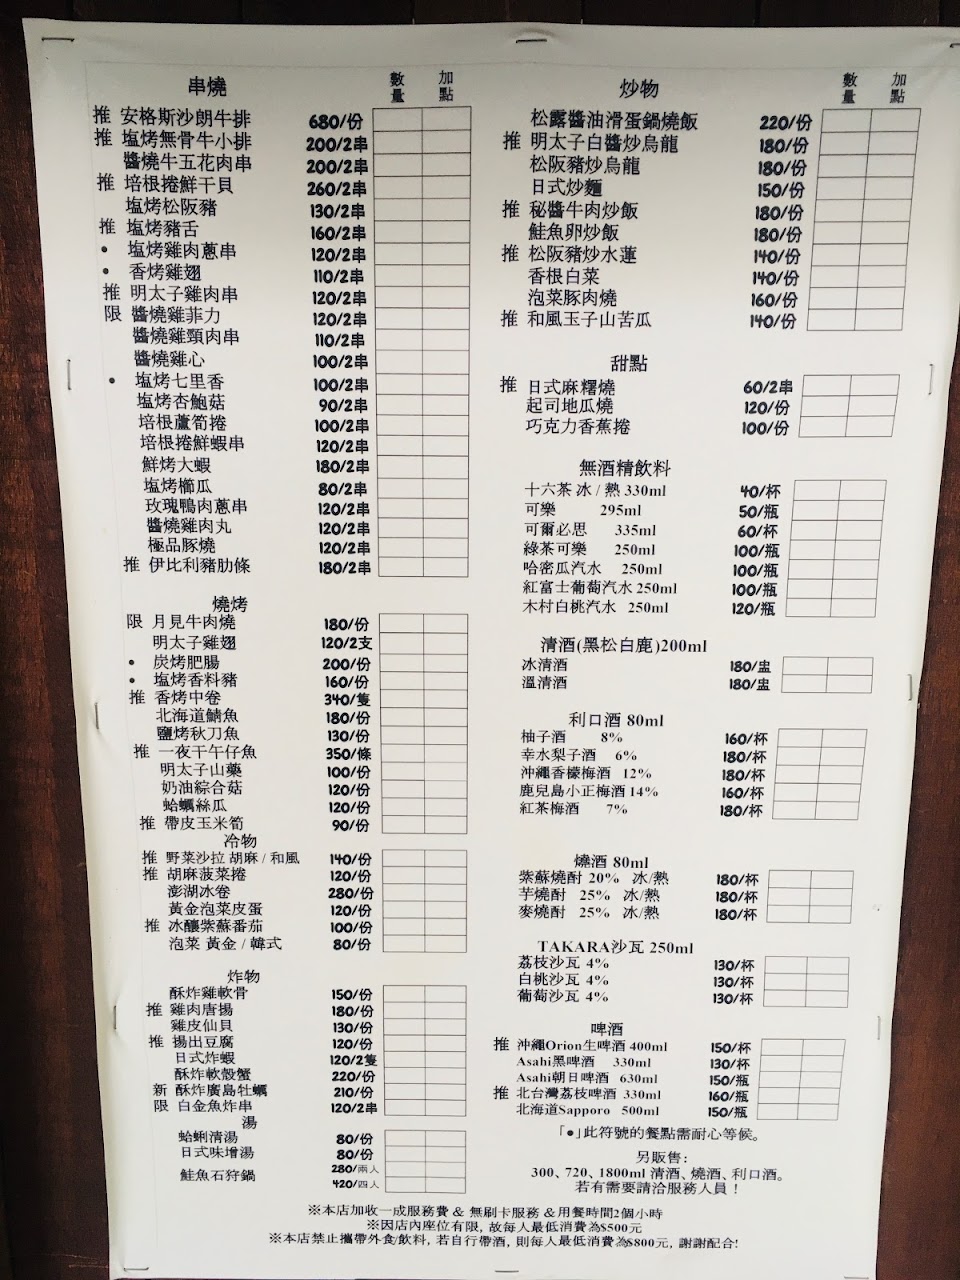 串燒 數量 加點
推 安格斯沙朗牛排 680/份
推 塩烤無骨牛小排 200/2串
醬燒牛五花肉串 200/2串
推 培根捲鮮干貝 260/2串
塩烤松阪豬 130/2串
推 塩烤豬舌 160/2串
• 塩烤雞肉蔥串 120/2串
• 香烤雞翅 110/2串
推 明太子雞肉串 120/2串
限 醬燒雞菲力 120/2串
醬燒雞頸肉串 110/2串
醬燒雞心 100/2串
• 塩烤七里香 100/2串
塩烤杏鮑菇 90/2串
培根蘆筍捲 100/2串
培根捲鮮蝦串 120/2串
鮮烤大蝦 180/2串
塩烤櫛瓜 80/2串
玫瑰鴨肉蔥串 120/2串
醬燒雞肉丸 120/2串
極品豚燒 120/2串
推 伊比利豬肋條 180/2串
燒烤
限 月見牛肉燒 180/份
明太子雞翅 120/2支
• 炭烤肥腸 200/份
• 塩烤香料豬 160/份
推 香烤中卷 340/隻
北海道鯖魚 180/份
鹽烤秋刀魚 130/份
推 一夜干午仔魚 350/條
明太子山藥 100/份
奶油綜合菇 120/份
蛤蠣絲瓜 120/份
推 帶皮玉米筍 90/份
冷物
推 野菜沙拉 胡麻/和風 140/份
推 胡麻菠菜捲 120/份
澎湖冰卷 280/份
黃金泡菜皮蛋 120/份
推 冰釀紫蘇番茄 100/份
泡菜 黃金/韓式 80/份
炸物
酥炸雞軟骨 150/份
推 雞肉唐揚 180/份
雞皮仙貝 130/份
推 揚出豆腐 120/份
日式炸蝦 120/2隻
酥炸軟殼蟹 220/份
新 酥炸廣島牡蠣 210/份
限 白金魚炸串 120/2串
湯
蛤蜊清湯 80/份
日式味增湯 80/份
鮭魚石狩鍋 280/兩人
420/四人
炒物 數量 加點
松露醬油滑蛋鍋燒飯 220/份
推 明太子白醬炒烏龍 180/份
松阪豬炒烏龍 180/份
日式炒麵 150/份
推 秘醬牛肉炒飯 180/份
鮭魚卵炒飯 180/份
推 松阪豬炒水蓮 140/份
香根白菜 140/份
泡菜豚肉燒 160/份
推 和風玉子山苦瓜 140/份
甜點
推 日式麻糬燒 60/2串
起司地瓜燒 120/份
巧克力香蕉捲 100/份
無酒精飲料
十六茶 冰/熱 330ml 40/杯
可樂 295ml 50/瓶
可爾必思 335ml 60/杯
綠茶可樂 250ml 100/瓶
哈密瓜汽水 250ml 100/瓶
紅富士葡萄汽水 250ml 100/瓶
木村白桃汽水 250ml 120/瓶
清酒(黑松白鹿)200ml
冰清酒 180/盅
溫清酒 180/盅
利口酒 80ml
柚子酒 8% 160/杯
幸水梨子酒 6% 180/杯
沖繩香檬梅酒 12% 180/杯
鹿兒島小正梅酒 14% 160/杯
紅茶梅酒 7% 180/杯
燒酒 80ml
紫蘇燒酎 20% 冰/熱 180/杯
芋燒酎 25% 冰/熱 180/杯
麥燒酎 25% 冰/熱 180/杯
TAKARA沙瓦 250ml
荔枝沙瓦 4% 130/杯
白桃沙瓦 4% 130/杯
葡萄沙瓦 4% 130/杯
啤酒
推 沖繩Orion生啤酒 400ml 150/杯
Asahi黑啤酒 330ml 130/杯
Asahi朝日啤酒 630ml 150/瓶
推 北台灣荔枝啤酒 330ml 160/瓶
北海道Sapporo 500ml 150/瓶
「•」此符號的餐點需耐心等候。
另販售:
300、720、1800ml 清酒、燒酒、利口酒。
若有需要請洽服務人員!
※本店加收一成服務費 & 無刷卡服務 &用餐時間2個小時
※因店內座位有限,故每人最低消費為$500元
※本店禁止攜帶外食/飲料,若自行帶酒,則每人最低消費為$800元,謝謝配合!